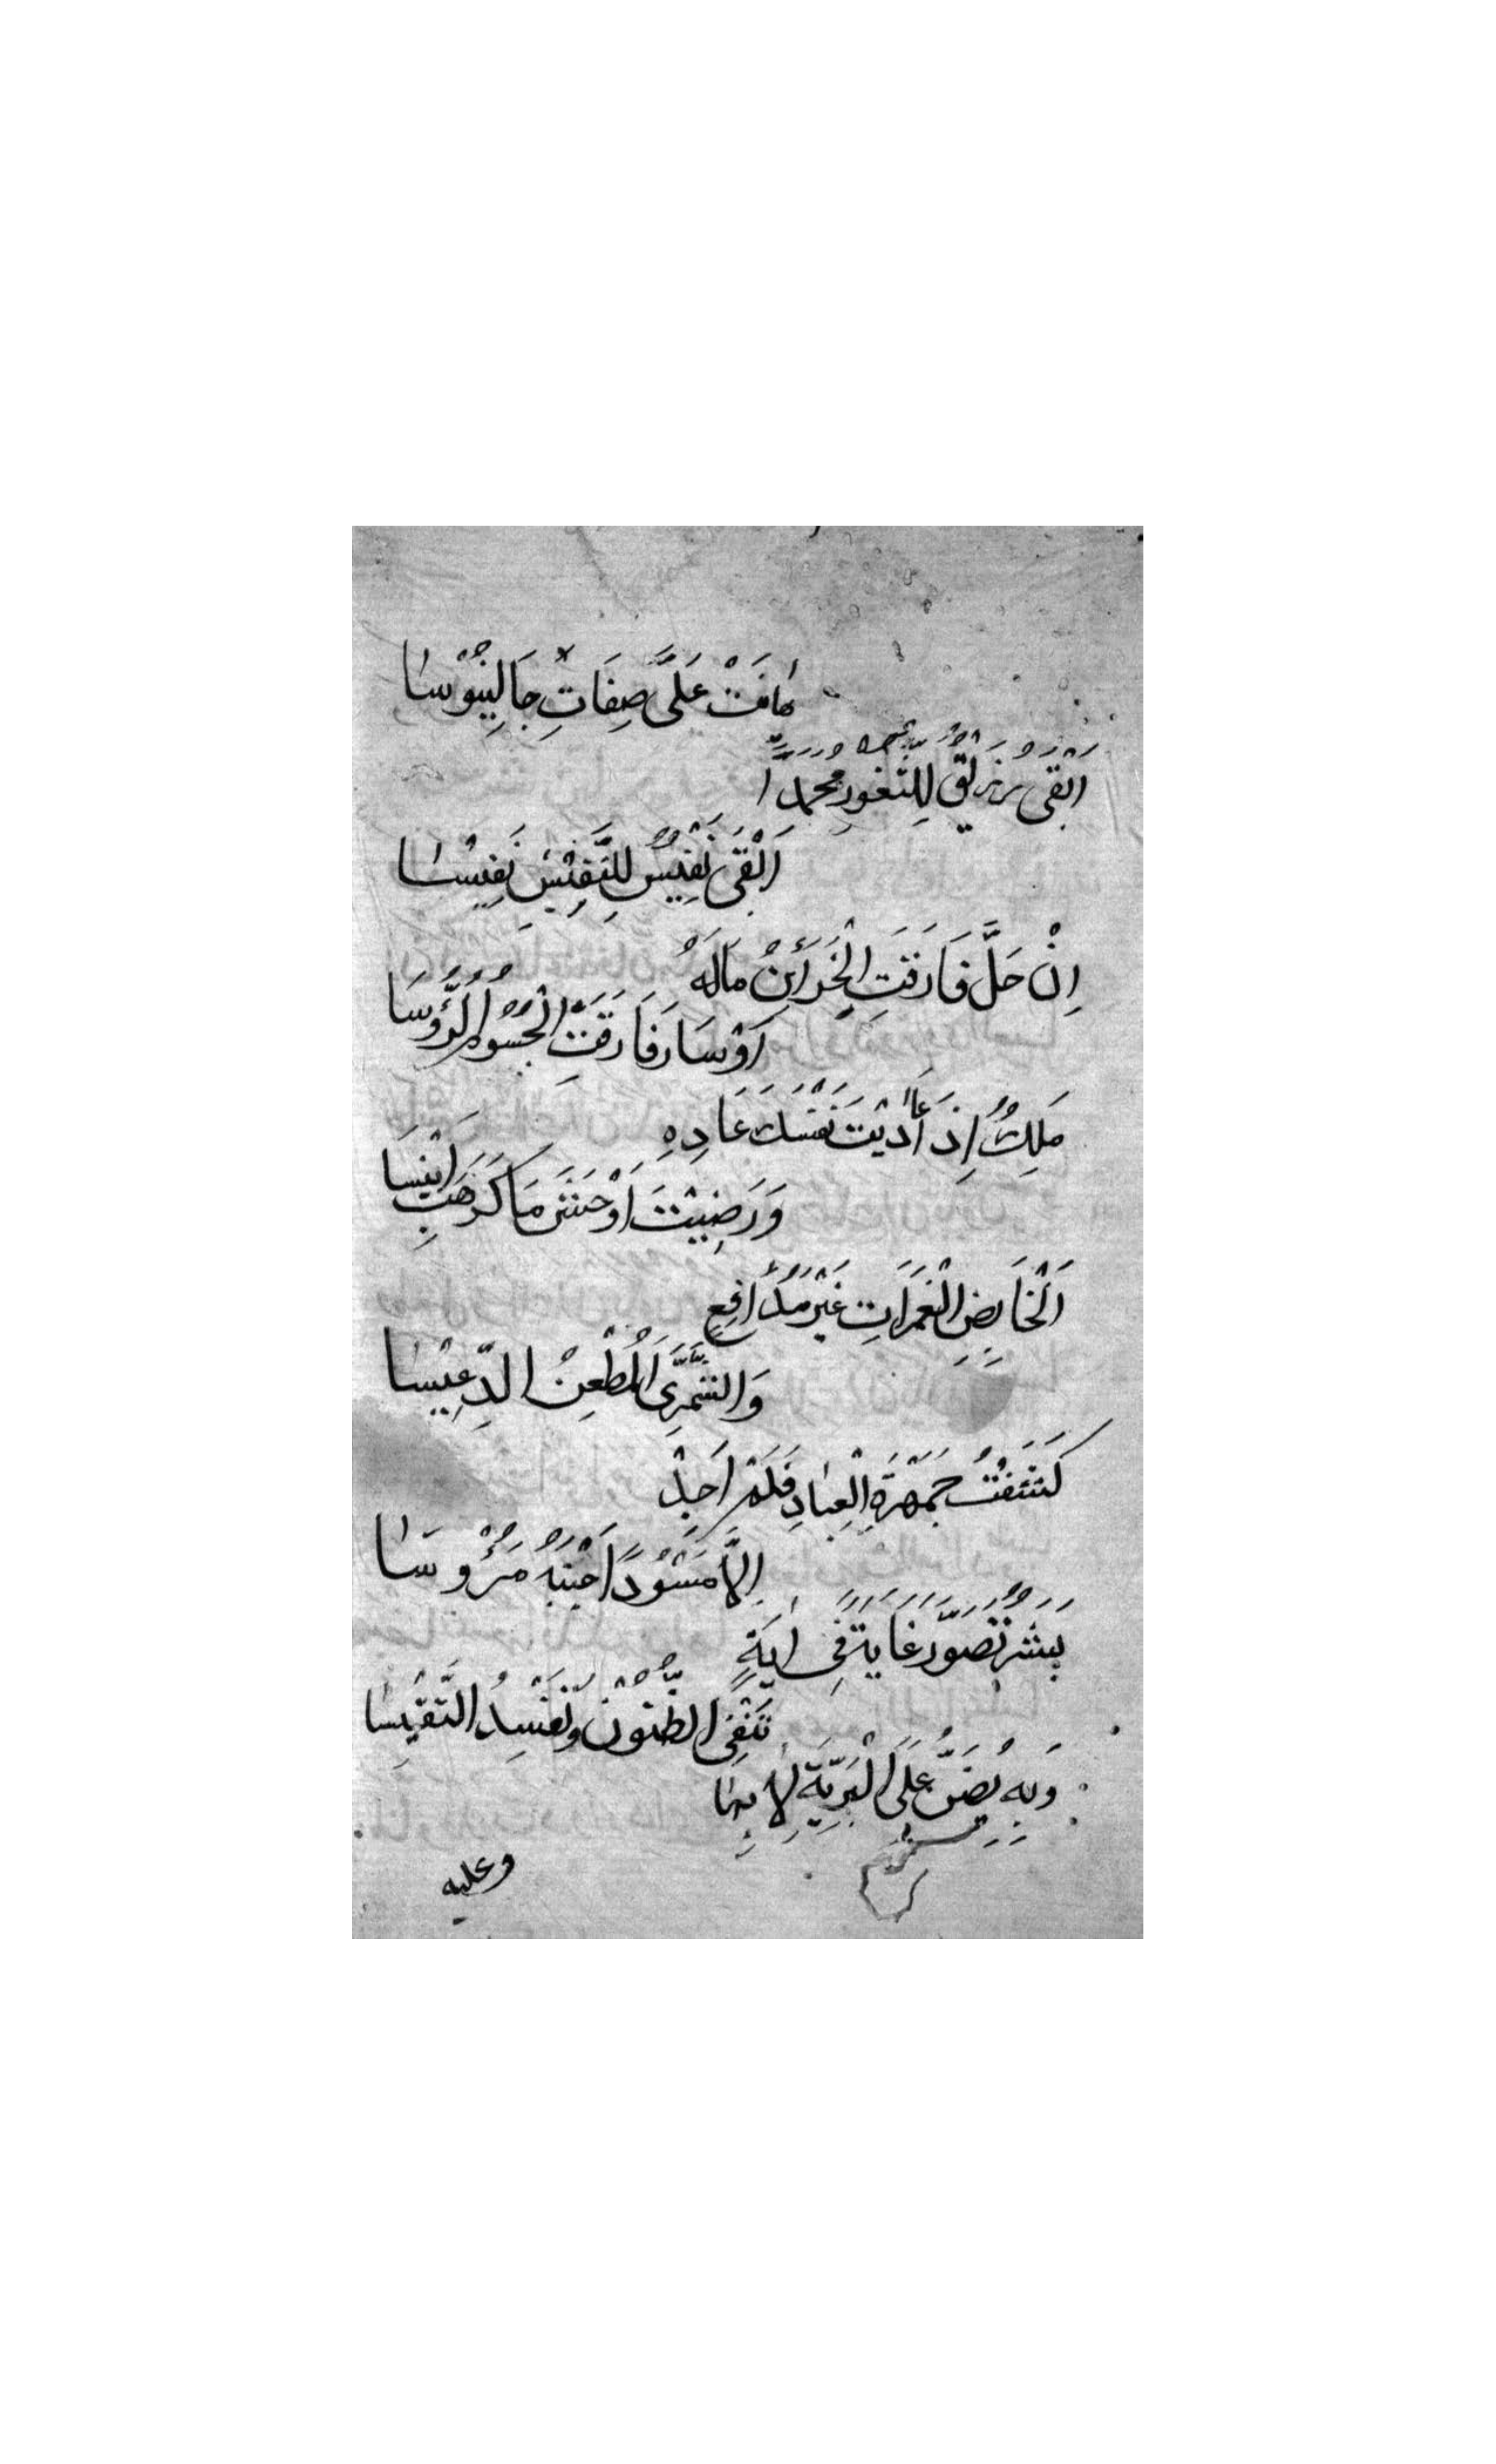 هَانَتْ عَلَى صِفَاتِ جَالِينُوْسَا
اَبْقَى زُرَيْقُ لِلثُّغُورِ مُحَمَّدًا
اَبْقَى نَفِيْسٌ لِلنَّفِيْسِ نَفِيْسَا
اِنْ حَلَّ فَارَقَتِ الْخَزَائِنُ مَالَهُ
اَوْ سَارَ فَارَقَتِ الْجُسُوْمُ الرُّؤُوسَا
مَلِكٌ اِذَا عَادَيْتَ نَفْسَكَ عَادِهِ
وَرَضِيْتَ اَوْحَشَ مَا كَرِهْتَ اَنِيْسَا
اَلْخَائِضِ الْغَمَرَاتِ غَيْرَ مُدَافِعٍ
وَالشَّمَّرِيَّ الْمُطْعِنَ الدِّعِّيْسَا
كَشَّفْتُ جَمْهَرَةَ الْعِبَادِ فَلَمْ اَجِدْ
اِلَّا مَسُوْدًا جَنْبَهُ مَرْؤُوسَا
بَشَرٌ تَصَوَّرَ غَايَةً فِي اٰيَةٍ
تَنْفِي الظُّنُوْنَ وَتُفْسِدُ التَّقْيِيْسَا
وَبِهِ يُضَنُّ عَلَى الْبَرِيَّةِ لَا بِهَا
وعليه